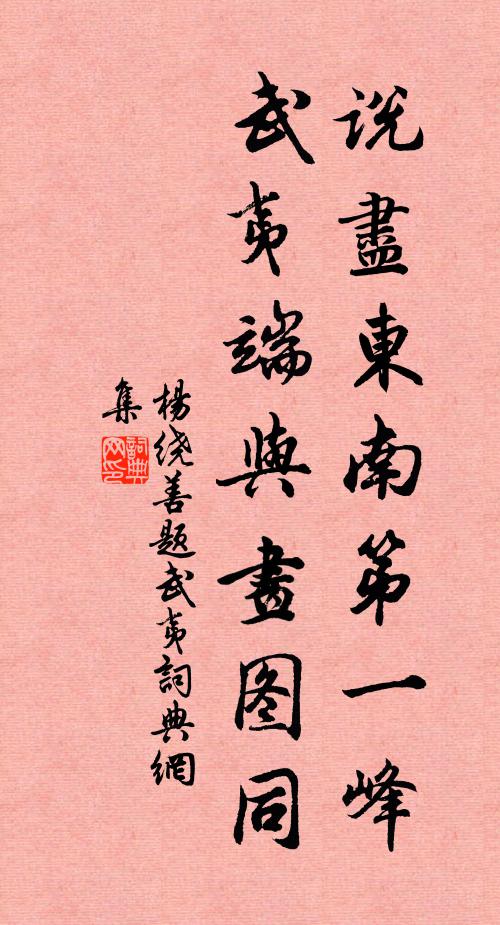 說盡東南第一峰
武夷端與畫图同
楊绕善題武夷詞典網
集
詞典网印